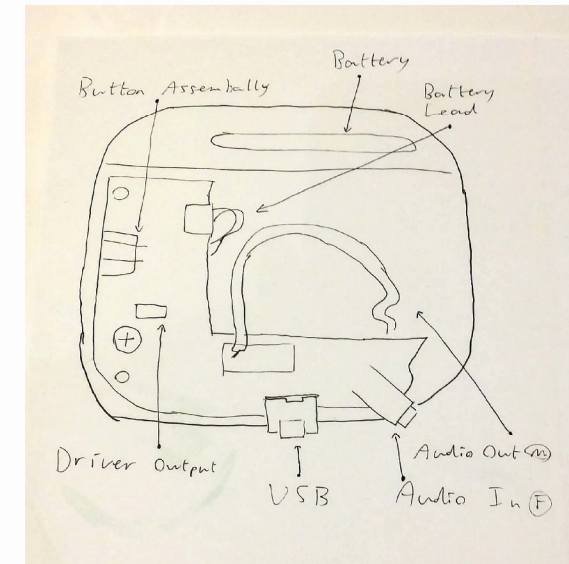 Battery
Button Assembally
Battery
Lead
Driver Output
USB
Audio Out M
Audio In F